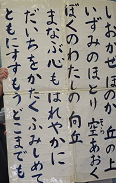 しおかぜほのか 丘の上
いずみのほとり 空あおく
ぼくのわたしの 向丘
まなぶ心も はれやかに
だいちをかたく ふみしめて
ともにすすもう どこまでも